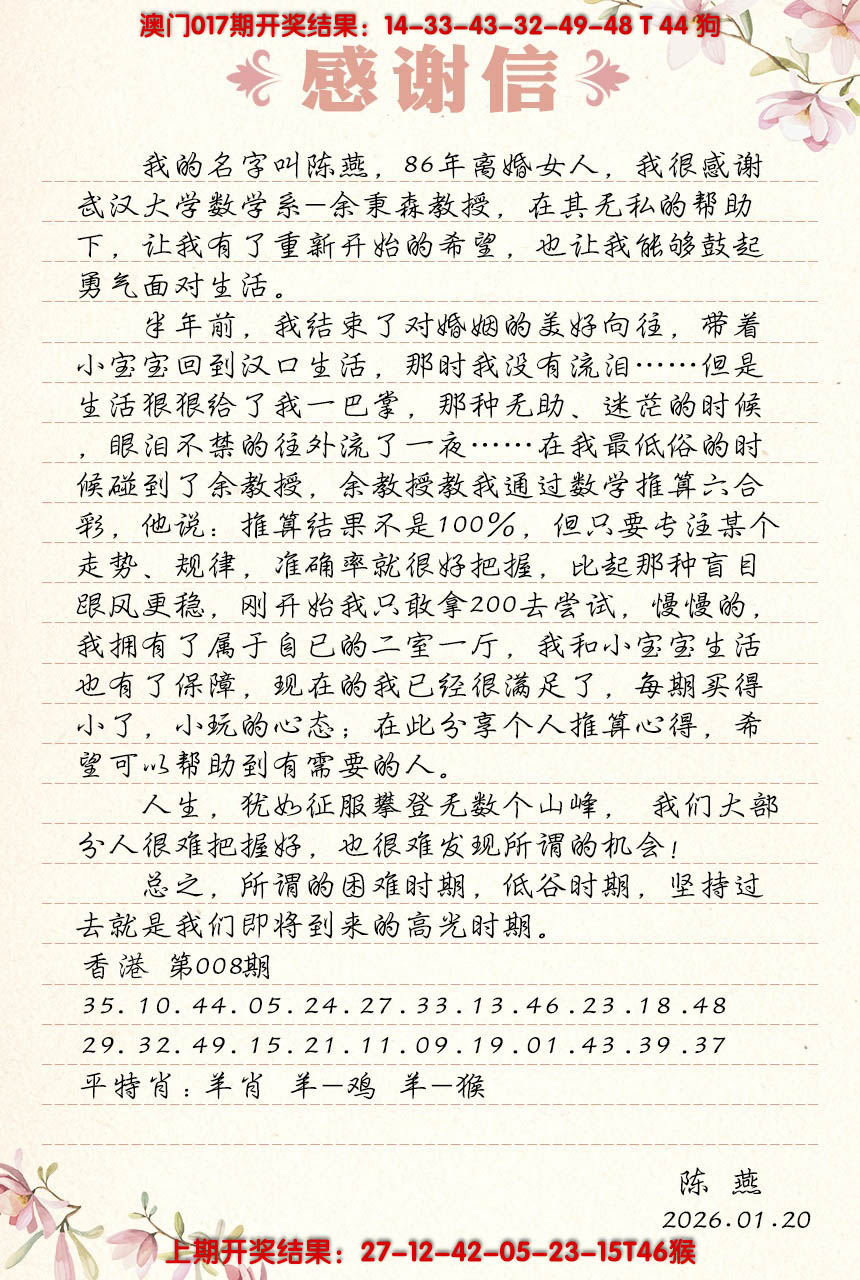 澳门017期开奖结果：14-33-43-32-49-48 T 44 狗
感谢信
我的名字叫陈燕，86年离婚女人，我很感谢
武汉大学数学系-余秉森教授，在其无私的帮助
下，让我有了重新开始的希望，也让我能够鼓起
勇气面对生活。
半年前，我结束了对婚姻的美好向往，带着
小宝宝回到汉口生活，那时我没有流泪……但是
生活狠狠给了我一巴掌，那种无助、迷茫的时候
，眼泪不禁的往外流了一夜……在我最低俗的时
候碰到了余教授，余教授教我通过数学推算六合
彩，他说：推算结果不是100%，但只要专注某个
走势、规律，准确率就很好把握，比起那种盲目
跟风更稳，刚开始我只敢拿200去尝试，慢慢的，
我拥有了属于自已的二室一厅，我和小宝宝生活
也有了保障，现在的我已经很满足了，每期买得
小了，小玩的心态；在此分享个人推算心得，希
望可以帮助到有需要的人。
人生，犹如征服攀登无数个山峰， 我们大部
分人很难把握好，也很难发现所谓的机会！
总之，所谓的困难时期，低谷时期，坚持过
去就是我们即将到来的高光时期。
香港 第008期
35.10.44.05.24.27.33.13.46.23.18.48
29.32.49.15.21.11.09.19.01.43.39.37
平特肖：羊肖 羊-鸡 羊-猴
陈 燕
2026.01.20
上期开奖结果：27-12-42-05-23-15T46猴